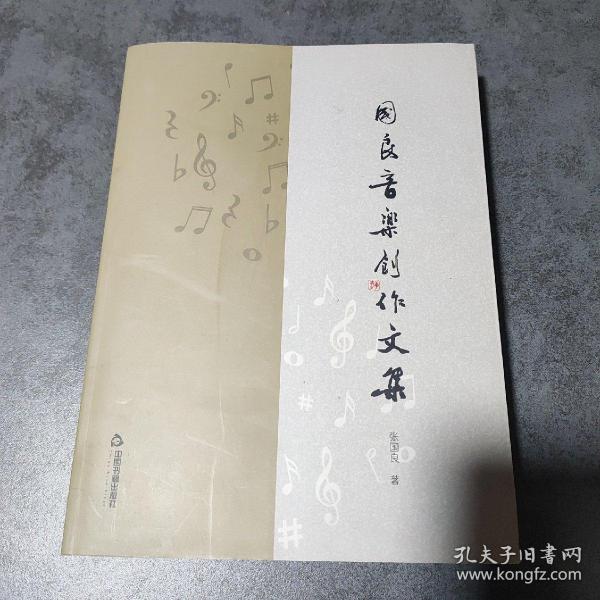 國良音樂創作文集
张国良 著
中国书籍出版社
孔夫子旧书网
www.kongfz.com